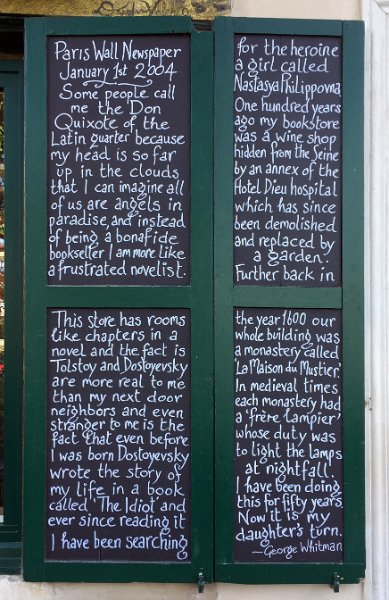 Paris Wall Newspaper
January 1st 2004
Some people call
me the Don
Quixote of the
Latin quarter because
my head is so far
up in the clouds
that I can imagine all
of us are angels in
paradise, and instead
of being a bonafide
bookseller I am more like
a frustrated novelist.
This store has rooms
like chapters in a
novel and the fact is
Tolstoy and Dostoyevsky
are more real to me
than my next door
neighbors and even
stranger to me is the
fact that even before
I was born Dostoyevsky
wrote the story of
my life in a book
called 'The Idiot' and
ever since reading it
I have been searching
for the heroine
a girl called
Nastasya Philippovna.
One hundred years
ago my bookstore
was a wine shop
hidden from the Seine
by an annex of the
Hotel Dieu hospital
which has since
been demolished
and replaced by
a garden.
Further back in
the year 1600 our
whole building was
a monastery called
'La Maison du Mustier'.
In medieval times
each monastery had
a 'frère lampier'
whose duty was
to light the lamps
at nightfall.
I have been doing
this for fifty years
Now it is my
daughter's turn.
~ George Whitman